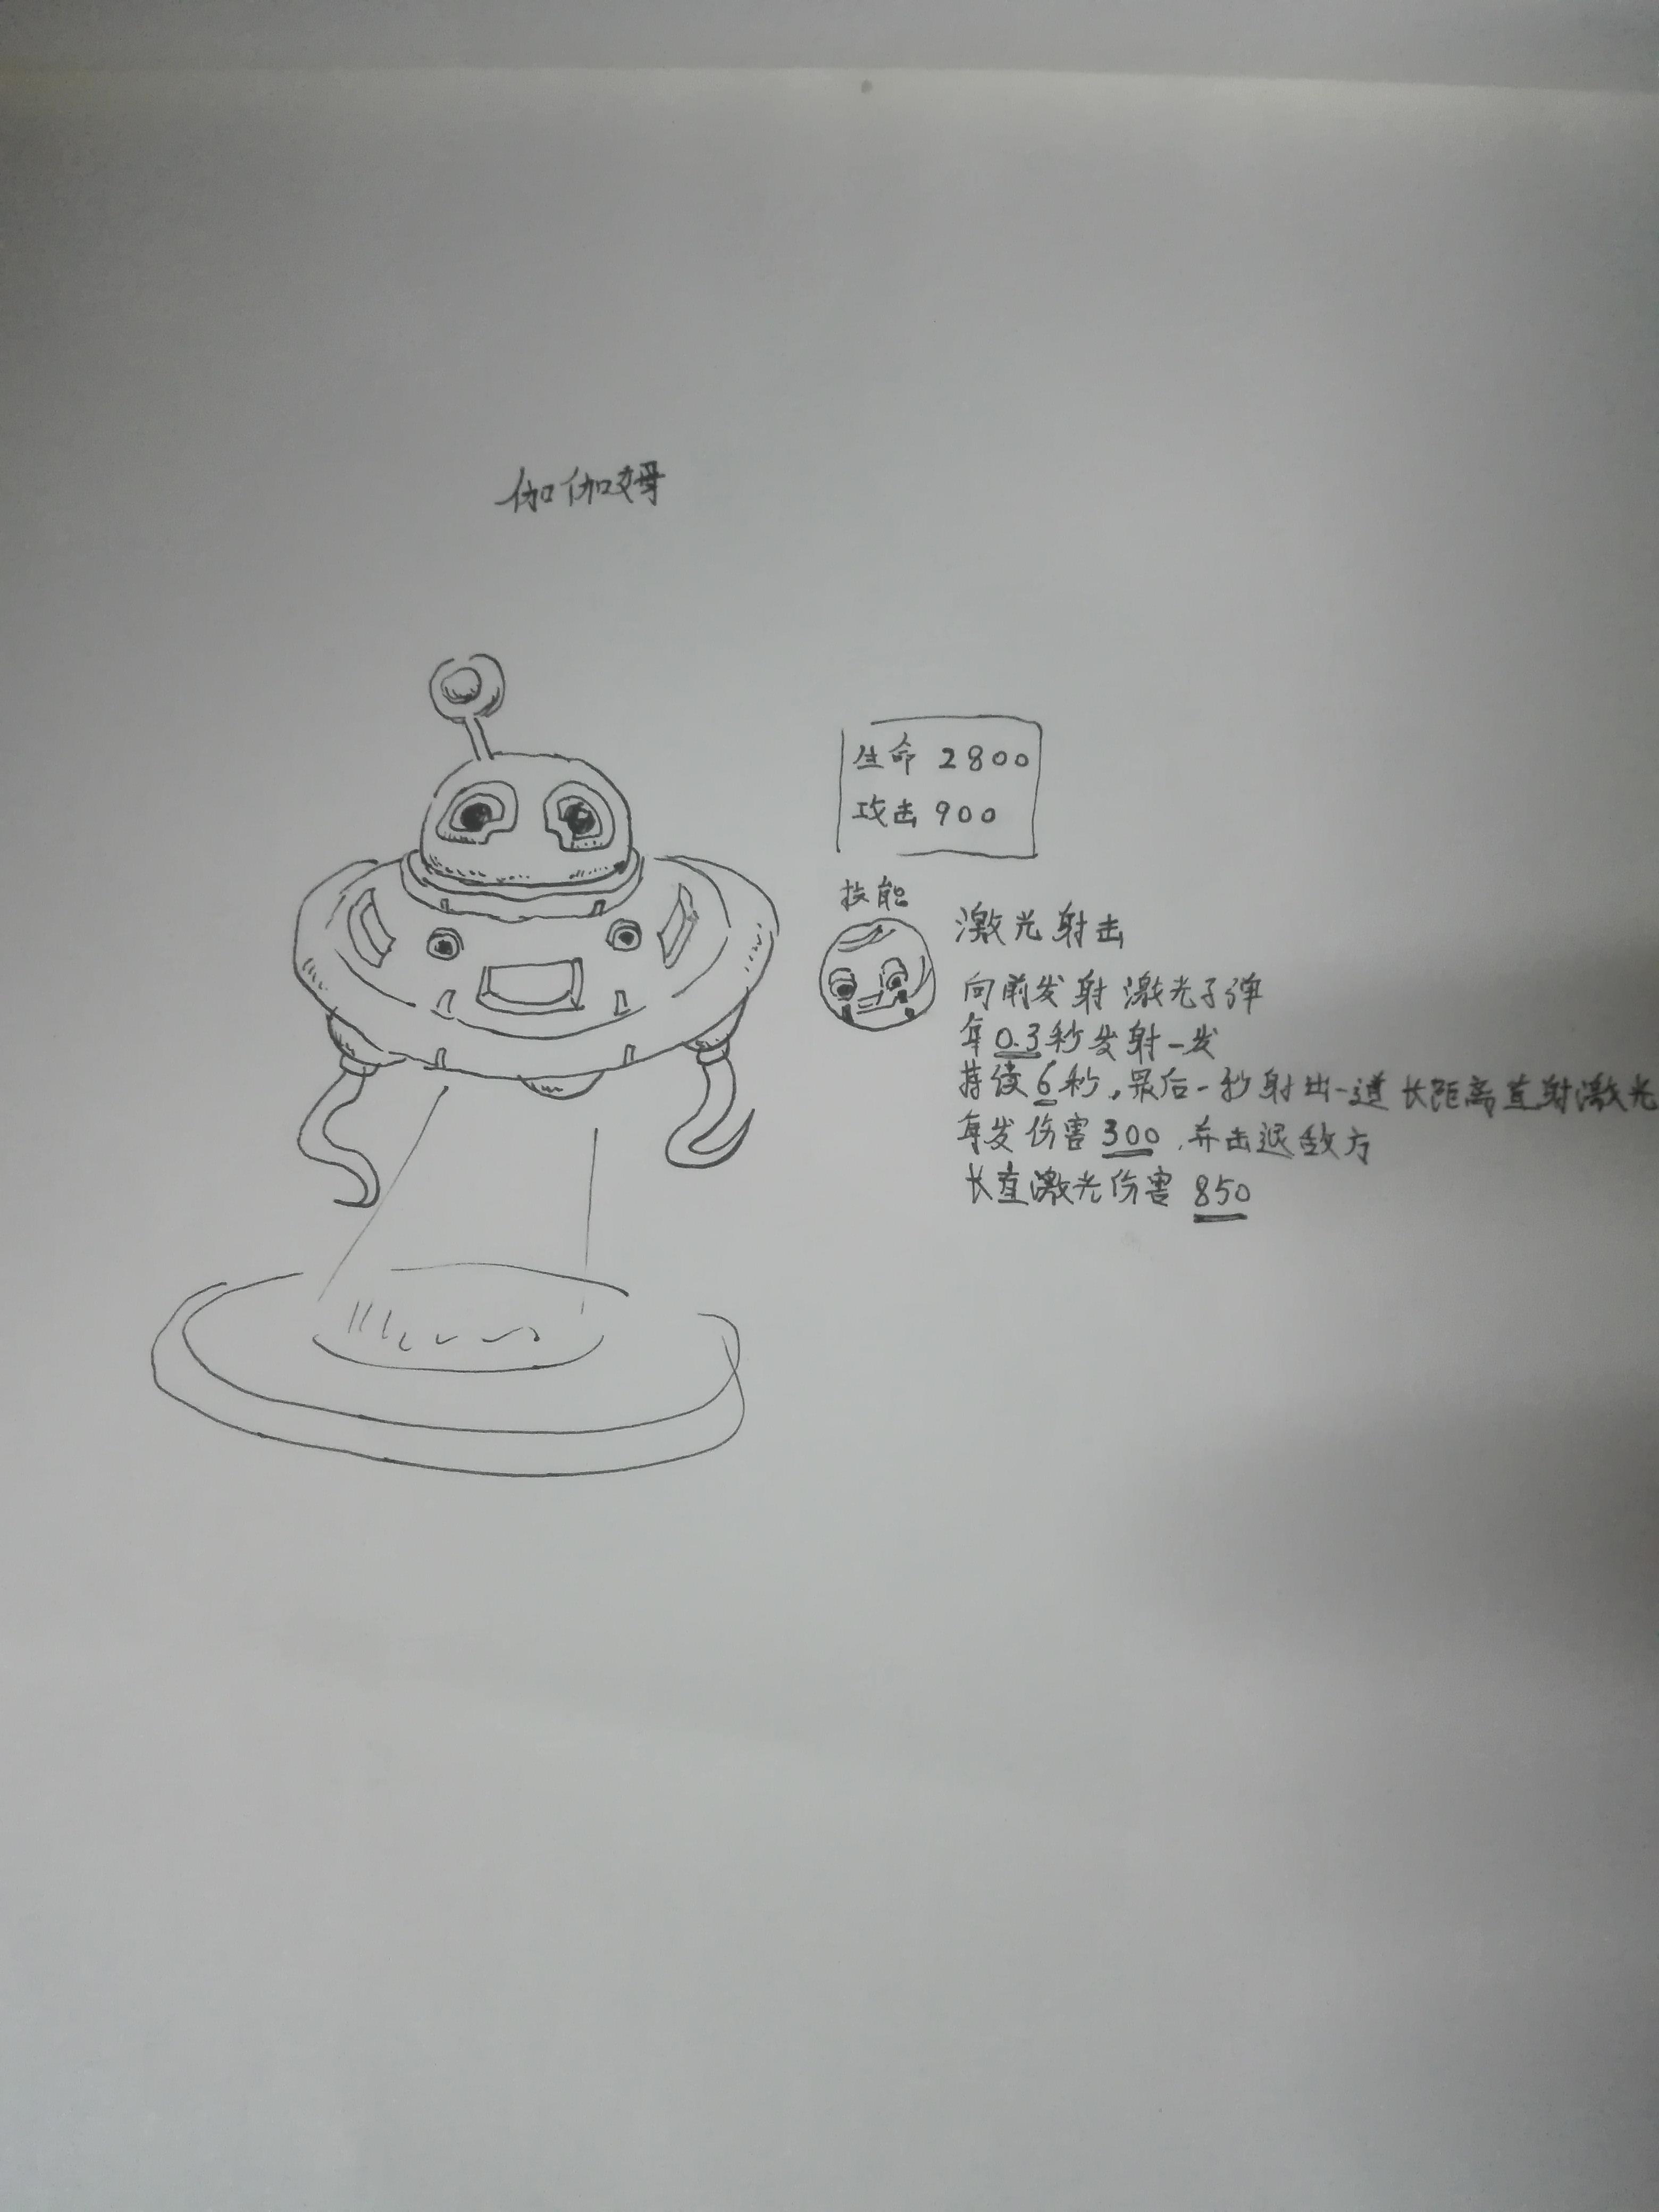 伽伽姆
生命 2800
攻击 900
技能
激光射击
向前发射激光子弹
每0.3秒发射一发
持续6秒，最后一秒射出一道长距离直射激光
每发伤害300，并击退敌方
长直激光伤害 850